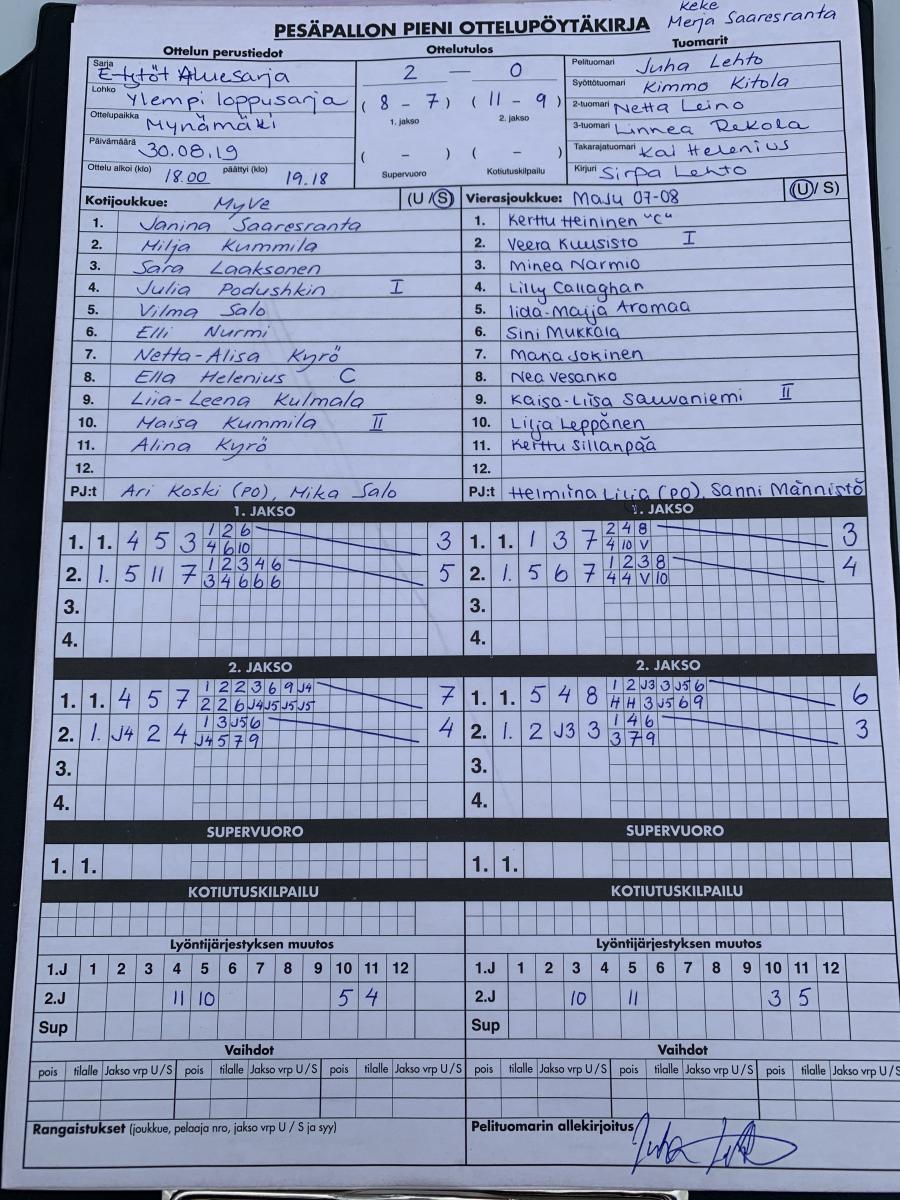 keke
PESÄPALLON PIENI OTTELUPÖYTÄKIRJA Merja Saaresranta
Ottelun perustiedot Ottelutulos Tuomarit
Sarja E-tytöt Aluesarja
2 — 0
Pelituomari Juha Lehto
Lohko Ylempi loppusarja
( 8 - 7 ) ( 11 - 9 )
Syöttötuomari Kimmo Kitola
1. jakso 2. jakso
Ottelupaikka Mynämäki
2-tuomari Netta Leino
Päivämäärä 30.08.19
3-tuomari Linnea Rekola
( - ) ( - )
Takarajatuomari Kai Helenius
Ottelu alkoi (klo) 18.00 päättyi (klo) 19.18
Supervuoro Kotiutuskilpailu
Kirjuri Sirpa Lehto
Kotijoukkue: MyVe (U / S) Vierasjoukkue: MaJu 07-08 (U / S)
1. Janina Saaresranta 1. Kerttu Heininen "C"
2. Milja Kummila 2. Veera Kuusisto I
3. Sara Laaksonen 3. Minea Narmio
4. Julia Podushkin I 4. Lilly Callaghan
5. Vilma Salo 5. Iida-Maija Aromaa
6. Elli Nurmi 6. Sini Mukkala
7. Netta-Alisa Kyrö 7. Maria Jokinen
8. Ella Helenius C 8. Nea Vesanko
9. Liia-Leena Kulmala 9. Kaisa-Liisa Sauvaniemi II
10. Maisa Kummila II 10. Lilja Leppänen
11. Alina Kyrö 11. Kerttu Sillanpää
12. 12.
PJ:t Ari Koski (PO), Mika Salo PJ:t Helmiina Lilja (PO), Sanni Männistö
1. JAKSO 1. JAKSO
1. 1. 4 5 3 1 2 6 3 1. 1. 1 3 7 2 4 8 3
4 6 10 4 10 V
2. 1. 5 11 7 1 2 3 4 6 5 2. 1. 5 6 7 1 2 3 8 4
3 4 6 6 6 4 4 V 10
3. 3.
4. 4.
2. JAKSO 2. JAKSO
1. 1. 4 5 7 1 2 2 3 6 9 J4 7 1. 1. 5 4 8 1 2 J3 3 J5 6 6
2 2 6 J4 J5 J5 J5 H H 3 J5 6 9
2. 1. J4 2 4 1 3 J5 6 4 2. 1. 2 J3 3 1 4 6 3
J4 5 7 9 3 7 9
3. 3.
4. 4.
SUPERVUORO SUPERVUORO
1. 1. 1. 1.
KOTIUTUSKILPAILU KOTIUTUSKILPAILU
Lyöntijärjestyksen muutos Lyöntijärjestyksen muutos
1.J 1 2 3 4 5 6 7 8 9 10 11 12 1.J 1 2 3 4 5 6 7 8 9 10 11 12
2.J 11 10 5 4 2.J 10 11 3 5
Sup Sup
Vaihdot Vaihdot
pois tilalle Jakso vrp U / S pois tilalle Jakso vrp U / S pois tilalle Jakso vrp U / S pois tilalle Jakso vrp U / S pois tilalle Jakso vrp U / S pois tilalle Jakso vrp U / S
Rangaistukset (joukkue, pelaaja nro, jakso vrp U / S ja syy) Pelituomarin allekirjoitus Juha Lehto